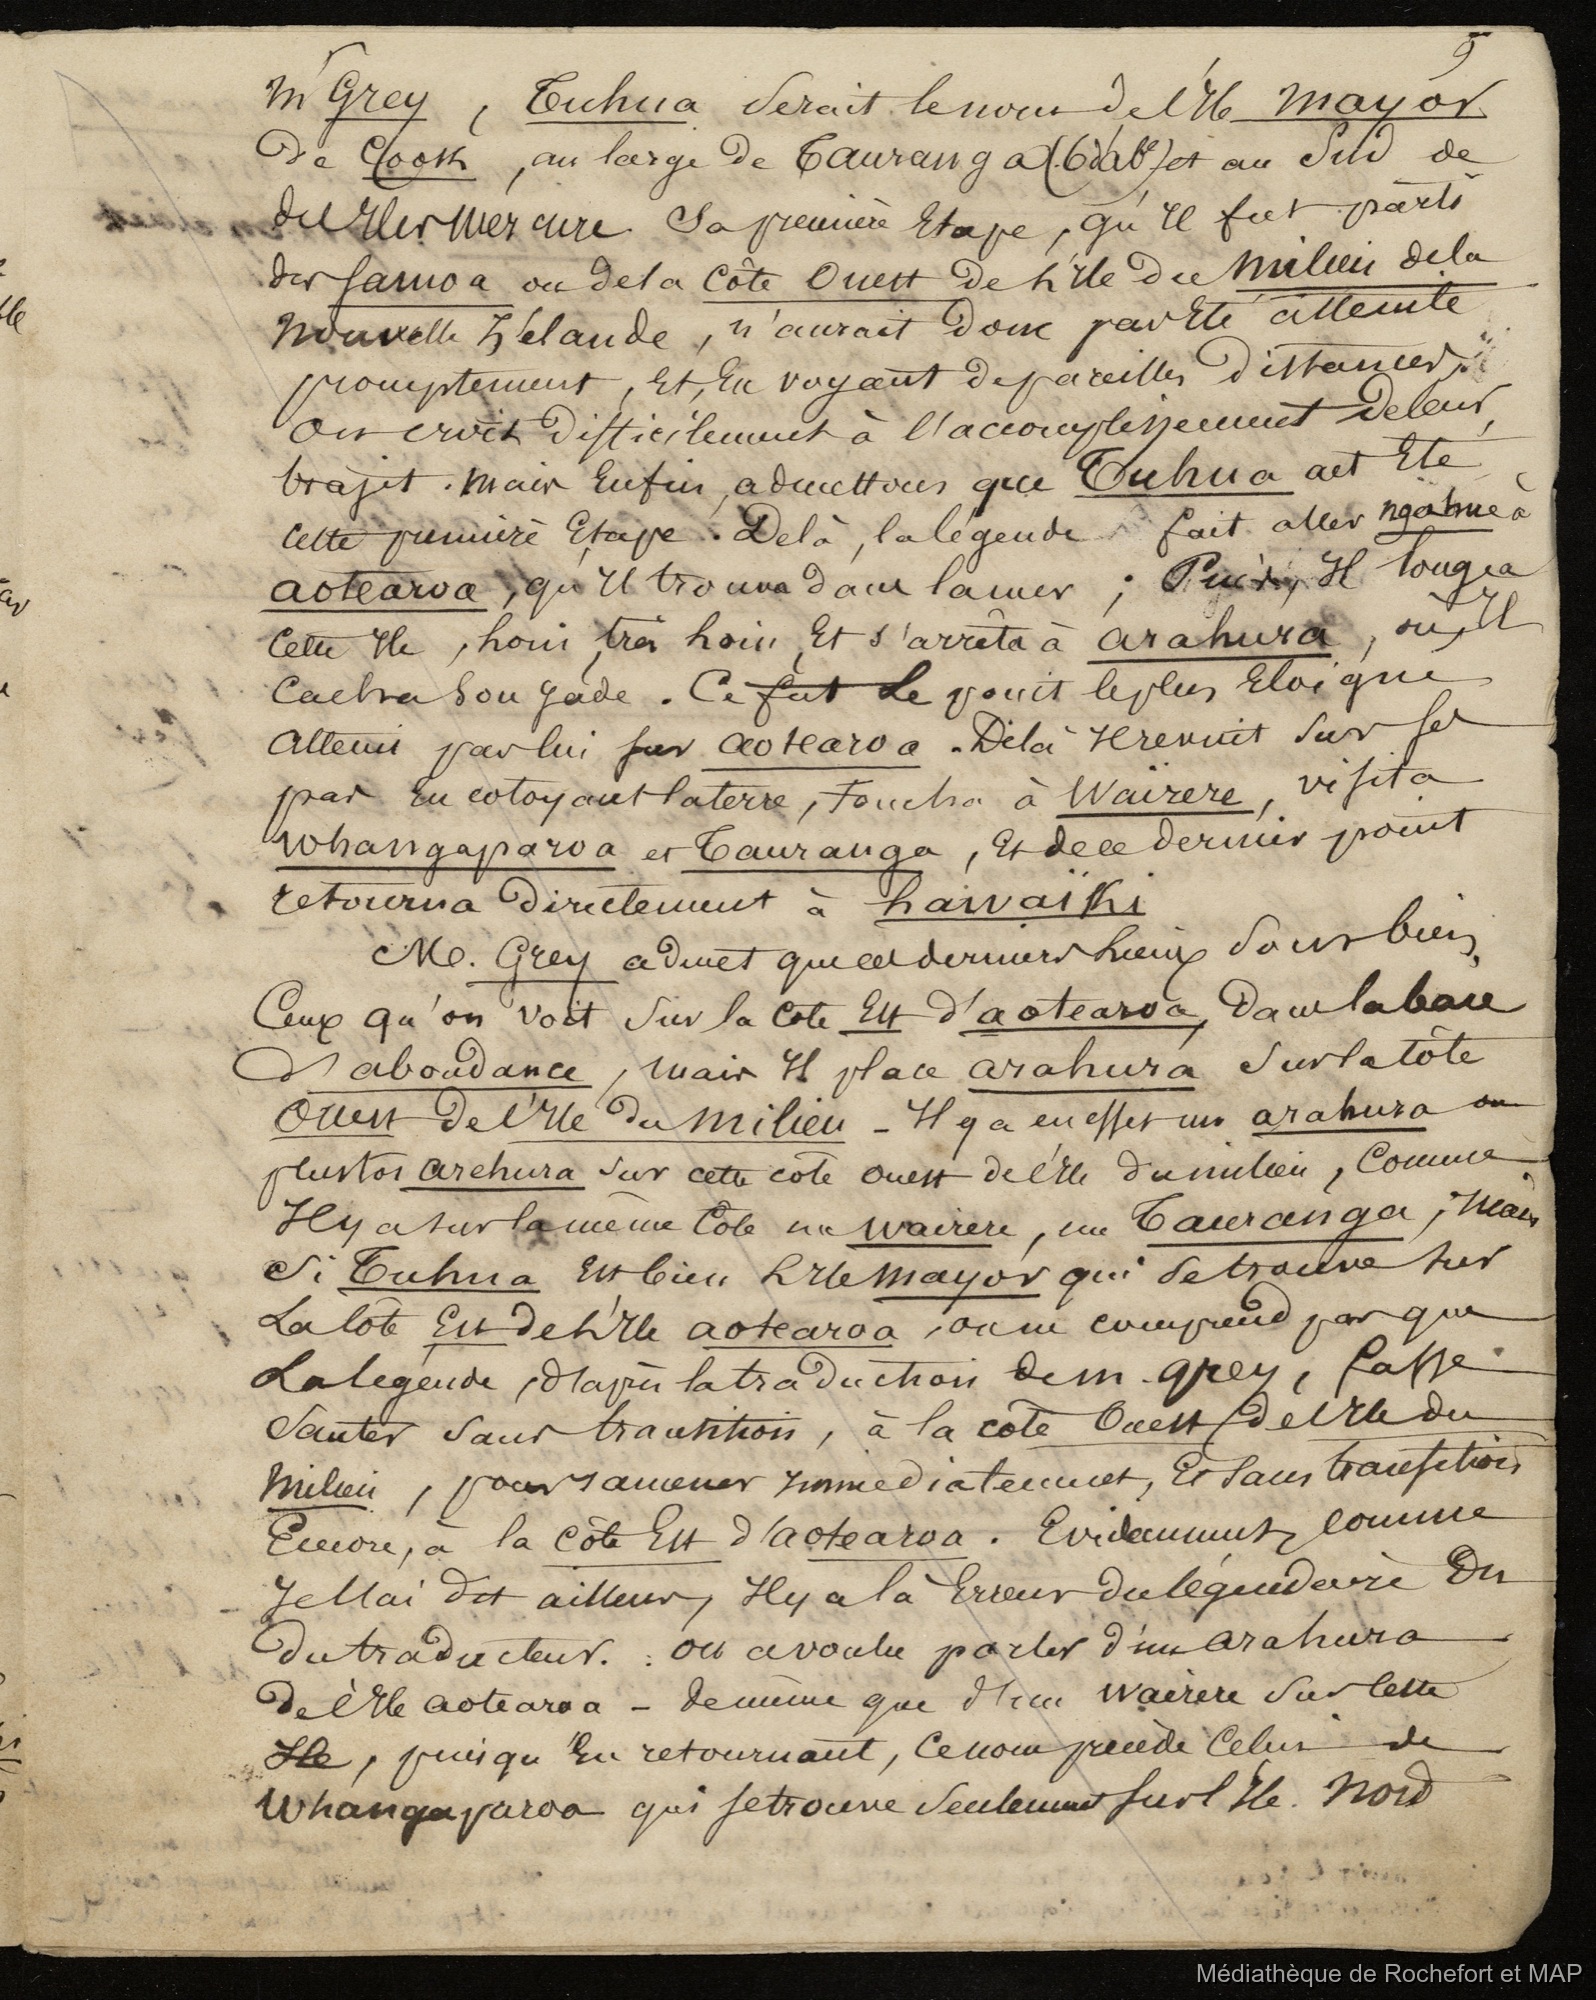 5
Mr Grey, Tuhua serait le nom de l'Ile Mayor
de Cook, au large de Tauranga (B. d'ab.) et au Sud de
des Iles Mercure. Sa première Etape, qu'Il fut parti
des Samoa ou de la Côte Ouest de l'Ile du Milieu de la
Nouvelle Zélande, n'aurait donc pas Eté atteinte
promptement, Et, En voyant de pareilles distances,
On croit difficilement à l'accomplissement de leur
trajet. Mais Enfin, admettons que Tuhua ait Eté
cette première Etape. Delà, la légende fait aller Ngahue à
Aotearoa, qu'Il trouva dans la mer ; Puis, Il longea
cette Ile, loin, très loin, Et s'arrêta à Arahura, où Il
cacha Son Jade. Ce fut Le point le plus Eloigné
Atteint par lui sur Aotearoa. Delà Il revint Sur ses
pas En cotoyant la terre, Toucha à Waïrere, visita
Whangaparoa et Tauranga, Et de ce dernier point
retourna directement à hawaïki
Me. Grey admet que ces derniers lieux Sont bien,
Ceux qu'on voit Sur la Côte Est d'aotearoa, Dans la baie
d'abondance, mais Il place Arahura Sur la Côte
Ouest de l'Ile du Milieu - Il y a en effet un arahura ou
plustot arehura sur cette côte ouest de l'Ile du milieu, Comme
Il y a sur la même Côte un wairere, un Tauranga ; Mais
Si Tuhua Est bien L'Ile Mayor qui se trouve sur
La Côte Est de L'Ile aotearoa, on ne comprend pas que
La légende, d'après la traduction de m. Grey, fasse
Sauter Sans transition, à la côte Ouest de l'Ile du
Milieu, pour ramener Immediatement, Et Sans transition
Encore, à la Côte Est d'aotearoa. Evidemment, comme
Je l'ai dit ailleurs, Il y a là Erreur du légendaire Ou
Du traducteur. : On a voulu parler d'un Arahura
De l'Ile aotearoa - de même que d'un Waïrere Sur Cette
Ile, puisqu'En retournant, Ce nom précède Celui de
Whangaparoa qui se trouve Seulement Sur l'Ile. Nord
Médiathèque de Rochefort et MAP